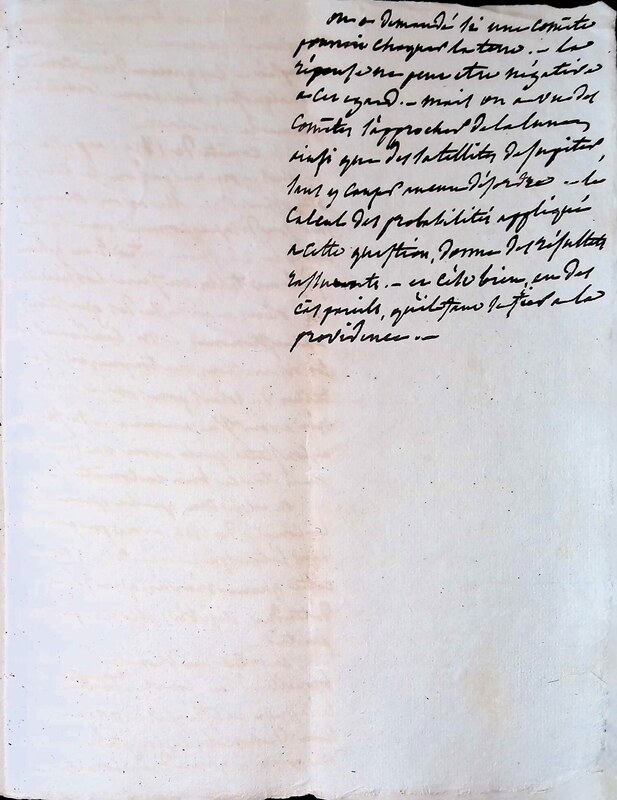 on a demandé si une comète
pourroit choquer la terre. – la
réponse ne peut etre négative
a cet egard. – mais on a vu des
comètes s'approcher de la lune,
ainsi que des satellites de jupiter,
sans y causer aucun désordre – le
calcul des probabilités appliqué
a cette question, donne des résultats
rassurants. – et c'est bien, en des
cas pareils, qu'il faut se fier a la
providence. –